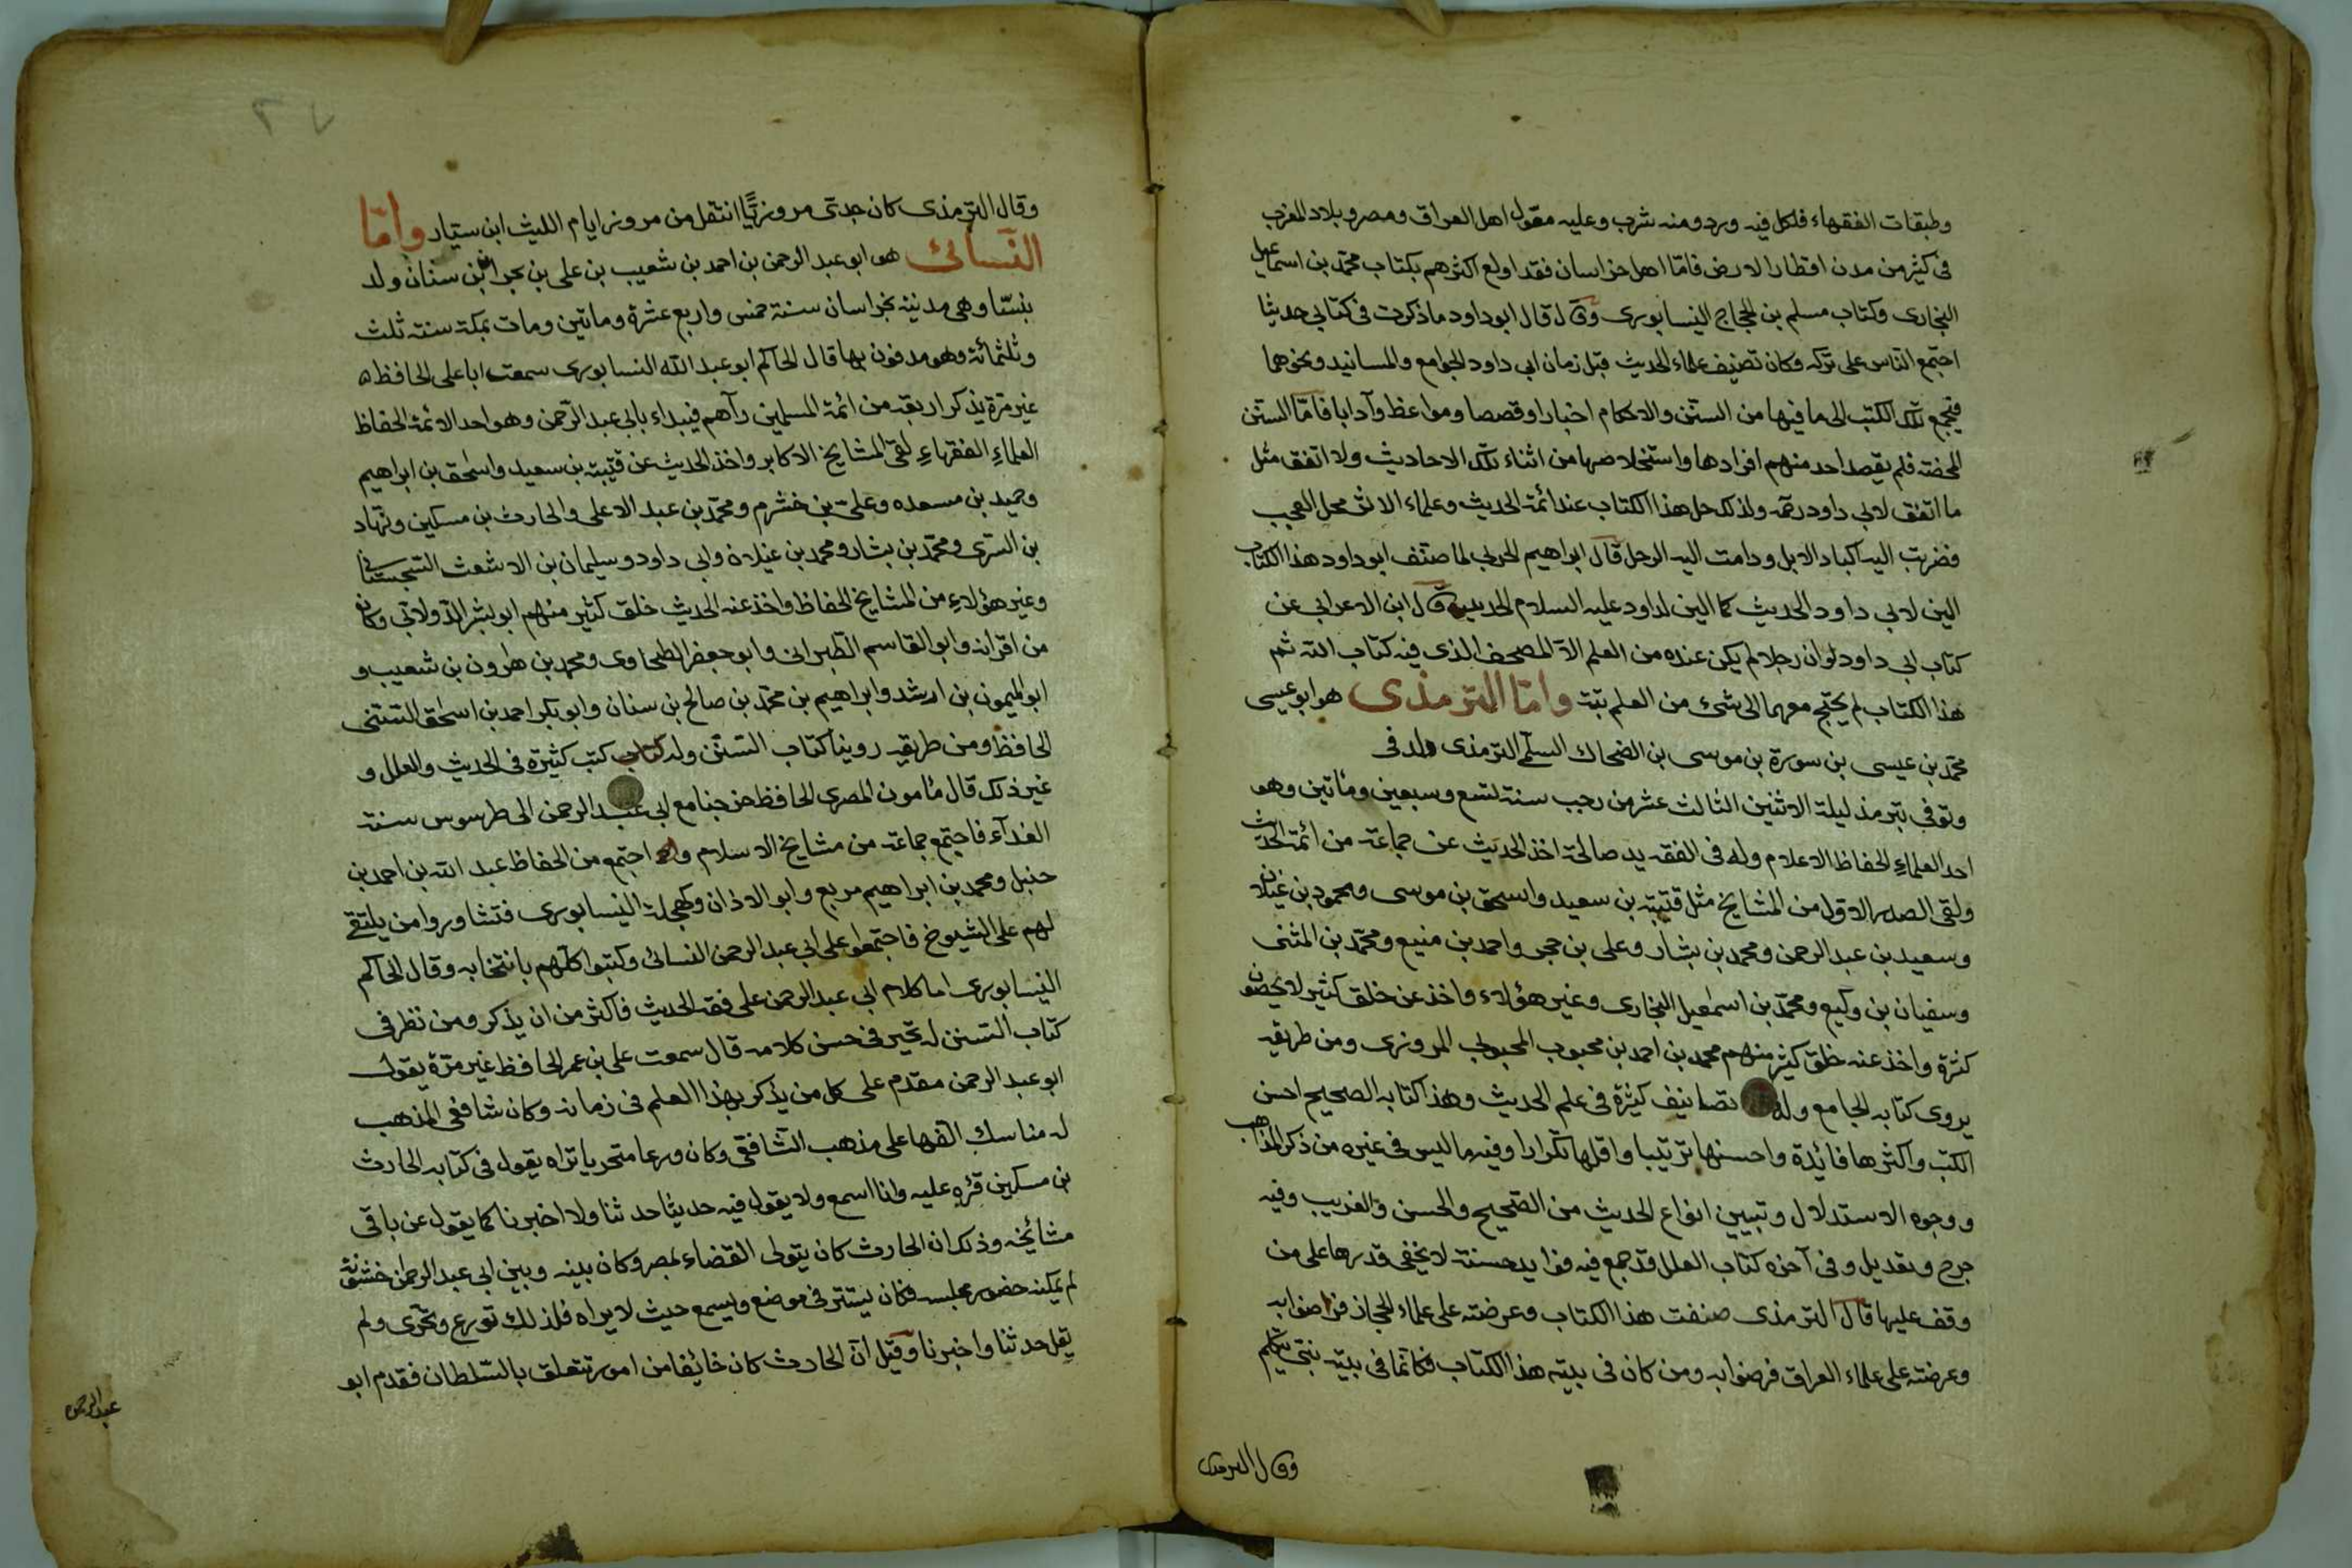 وطبقات الفقهاء فلكل فيه ورد ومنه شرب وعليه مقول اهل العراق ومصر وبلاد المغرب
فى كثير من مدن اقطار الارض فامّا اهل خراسان فقد اولع اكثرهم بكتاب محمّد بن اسماعيل
البخارى وكتاب مسلم بن الحجاج النيسابورى وقال قال ابو داود ما ذكرت فى كتابى حديثا
اجتمع الناس على تركه وكان تصنيف علماء الحديث قبل زمان ابى داود الجوامع والمسانيد ونحوهما
فيجمع تلك الكتب الى ما فيها من السنن والاحكام اخبارا وقصصا ومواعظ وآدابا فامّا السنن
المحضة فلم يقصد احد منهم افرادها واستخلاصها من اثناء تلك الاحاديث ولا اتفق مثل
ما اتفق لابى داود رحمه ولذلك حل هذا الكتاب عند ائمة الحديث وعلماء الاثر محل العجب
فضربت اليه اكباد الابل ودامت اليه الرحل قال ابراهيم الحربى لما صنف ابو داود هذا الكتاب
الين لابى داود الحديث كما الين لداود عليه السلام الحديد وقال ابن الاعرابى عن
كتاب ابى داود لو ان رجلا لم يكن عنده من العلم الا المصحف الذى فيه كتاب الله ثم
هذا الكتاب لم يحتج معهما الى شئ من العلم بتة وامّا الترمذى هو ابو عيسى
محمّد بن عيسى بن سورة بن موسى بن الضحاك السلّم الترمذى ولد فى
وتوفى بترمذ ليلة الاثنين الثالث عشر من رجب سنة تسع وسبعين ومائتين وهو
احد العلماء الحفاظ الاعلام وله فى الفقه يد صالحة اخذ الحديث عن جماعة من ائمة الحديث
ولقى الصدر الاول من المشايخ مثل قتيبة بن سعيد واسحق بن موسى ومحمود بن غيلان
وسعيد بن عبد الرحمن ومحمد بن بشار وعلى بن حجر واحمد بن منيع ومحمّد بن المثنى
وسفيان بن وكيع ومحمّد بن اسمعيل البخارى وغير هؤلاء واخذ عن خلق كثير لا يحصون
كثرة واخذ عنه خلق كثير منهم محمد بن احمد بن محبوب المحبوبى المروزى ومن طريقه
يروى كتابه الجامع وله تصانيف كثيرة فى علم الحديث وهذا كتابه الصحيح احسن
الكتب واكثرها فائدة واحسنها ترتيبا واقلها تكرارا وفيه ما ليس فى غيره من ذكر المذاهب
ووجوه الاستدلال وتبيين انواع الحديث من الصّحيح والحسن والغريب وفيه
جرح وتعديل وفى آخره كتاب العلل قد جمع فيه فوايد حسنة لا يخفى قدرها على من
وقف عليها قال الترمذى صنفت هذا الكتاب وعرضته على علماء الحجاز فرضوا به
وعرضته على علماء العراق فرضوا به ومن كان فى بيته هذا الكتاب فكانّما فى بيته نبى يتكلم
وقال الترمذى
٢٧
وقال الترمذى كان جدى مروزيًّا انتقل من مرو زايام الليث ابن سيّار وامّا
النّسائى هو ابو عبد الرحمن بن احمد بن شعيب بن على بن بحر ابن سنان ولد
بنسّا وهى مدينة بخراسان سنة خمس واربع عشرة وماتين ومات بمكة سنة ثلث
وثلثمائة وهو مدفون بها قال الحاكم ابو عبد الله النسابورى سمعت ابا على الحافظ
غير مرة يذكر اربعة من ائمة المسلمين رآهم فيبداء بابى عبد الرّحمن وهو احد الائمة الحفاظ
العلماءِ الفقهاءِ لقى المشايخ الاكابر واخذ الحديث عن قتيبة بن سعيد واسحٰق بن ابراهيم
وحميد بن مسعده وعلىّ بن خشرم ومحمّد بن عبد الاعلى والحارث بن مسكين وهناد
بن السّرى ومحمّد بن بشار ومحمد بن غيلان وابى داود وسليمان بن الاشعث السّجستانى
وغير هؤلاءِ من المشايخ الحفاظ واخذ عنه الحديث خلق كثير منهم ابو بشر الدّولابى وكان
من اقرانه وابو القاسم الطّبرانى وابو جعفر الطحاوى ومحمد بن هٰرون بن شعيب و
ابو الميمون بن ارشد وابراهيم بن محمّد بن صالح بن سنان وابو بكر احمد بن اسحٰق السّنى
الحافظ ومن طريقه روينا كتاب السّنن وله كتب كثيرة فى الحديث والعلل و
غير ذلك قال مأمون المصرى الحافظ خرجنا مع ابى عبد الرحمن الى طرسوس سنة
الفدآء فاجتمع جماعة من مشايخ الاسلام واجتمع من الحفاظ عبد الله بن احمد بن
حنبل ومحمد بن ابراهيم مربع وابو الاذان وكيجلة النيسابورى فتشاوروا من يلتقے
لهم على الشيوخ فاجتمعوا على ابى عبد الرحمن النسائى وكتبوا كلّهم بانتخابه وقال الحاكم
النيسابورى اما كلام ابى عبد الرحمن على فقه الحديث فاكثر من ان يذكر ومن نظر فى
كتاب السنن له تحير فى حسن كلامه قال سمعت على بن عمر الحافظ غير مرّة يقول
ابو عبد الرحمن مقدم على كل من يذكر بهذا العلم فى زمانه وكان شافعى المذهب
له مناسك الفها على مذهب الشّافعى وكان ورعا متحريا تراه يقول فى كتابه الحارث
بن مسكين قرئ عليه وانا اسمع ولا يقول فيه حديثا حدثنا ولا اخبرنا كما يقول عن باقى
مشائخه وذلك ان الحارث كان يتولى القضاء بمصر وكان بينه وبين ابى عبد الرحمٰن خشونة
لم يمكنه حضور مجلسه فكان يستتر فى موضع ويسمع حيث لا يراه فلذلك تورع وتحرّى ولم
يقل حدثنا واخبرنا وقيل انّ الحارث كان خائفا من امور تتعلق بالسّلطان فقدم ابو
عبد الرحمن